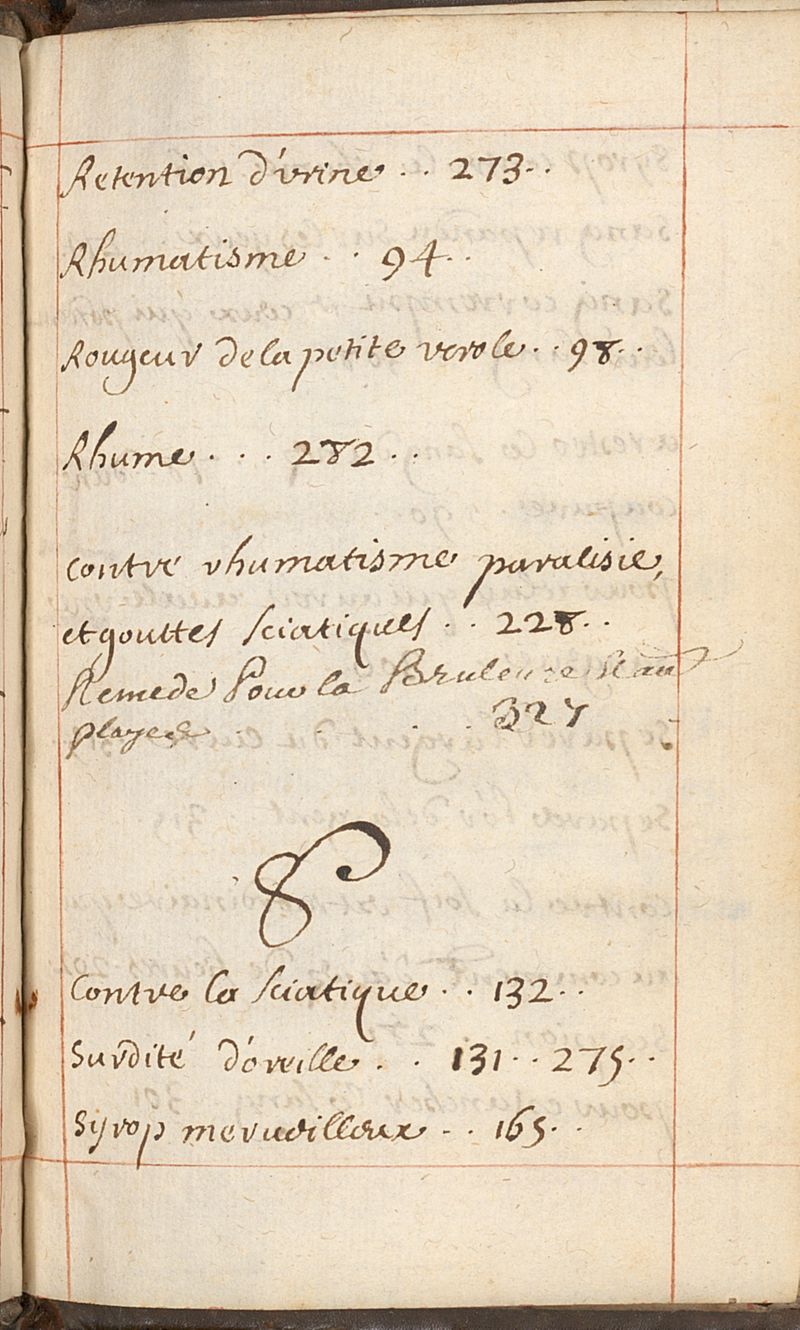 Retention d'vrine . . 273 . .
Rhumatisme . . 94 . .
Rougeur de la petite verole . . 98 . .
Rhume . . . 282 . .
contre rhumatisme paralisie,
et gouttes sciatiques . . 228 . .
Remede Pour la Bruleure
playes . . . . 327
S
Contre la sciatique . . 132 . .
Surdité d'óreille . . 131 . . 275 . .
Syrop merueilleux . . 165 . .